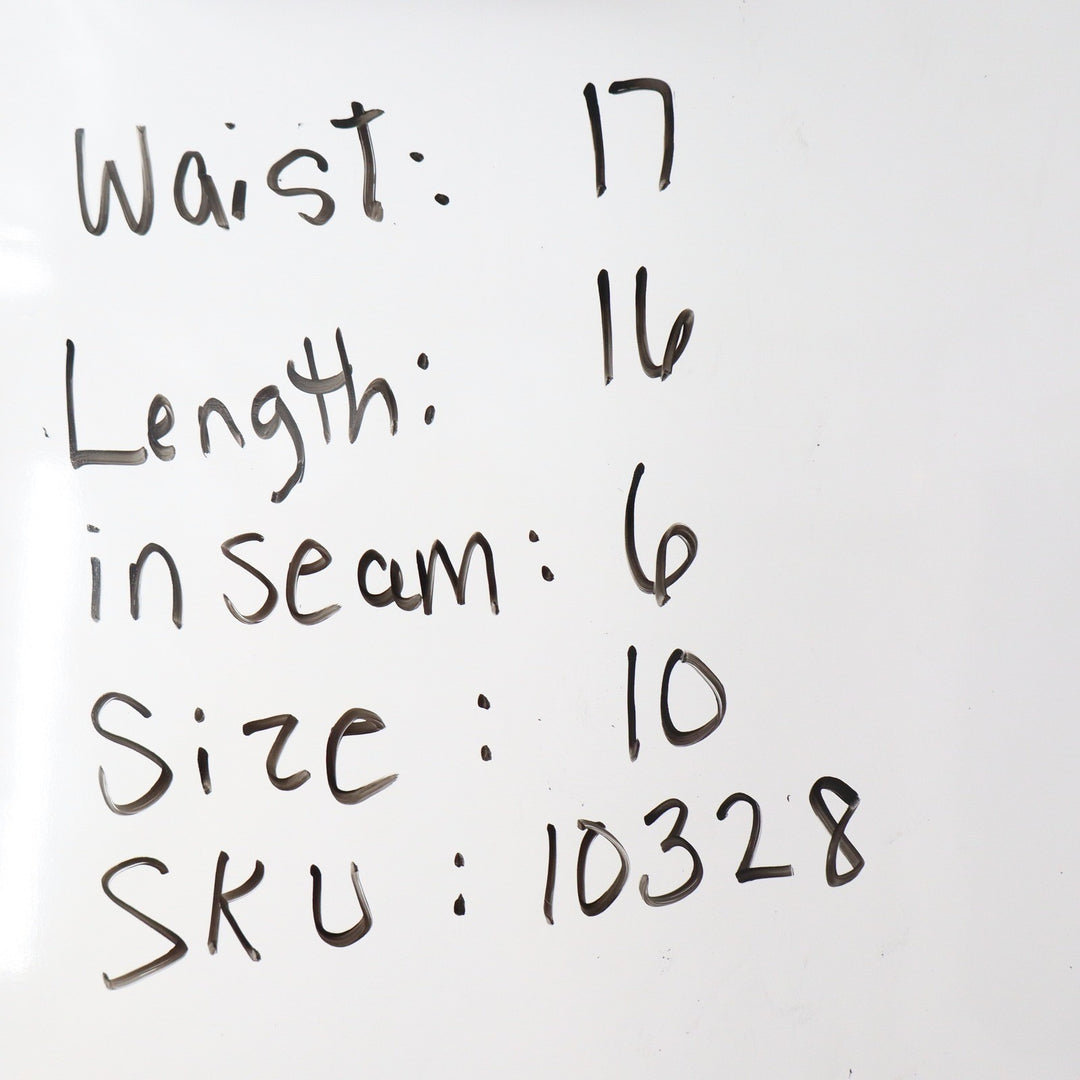 Waist: 17
Length: 16
in seam: 6
Size: 10
SKU: 10328